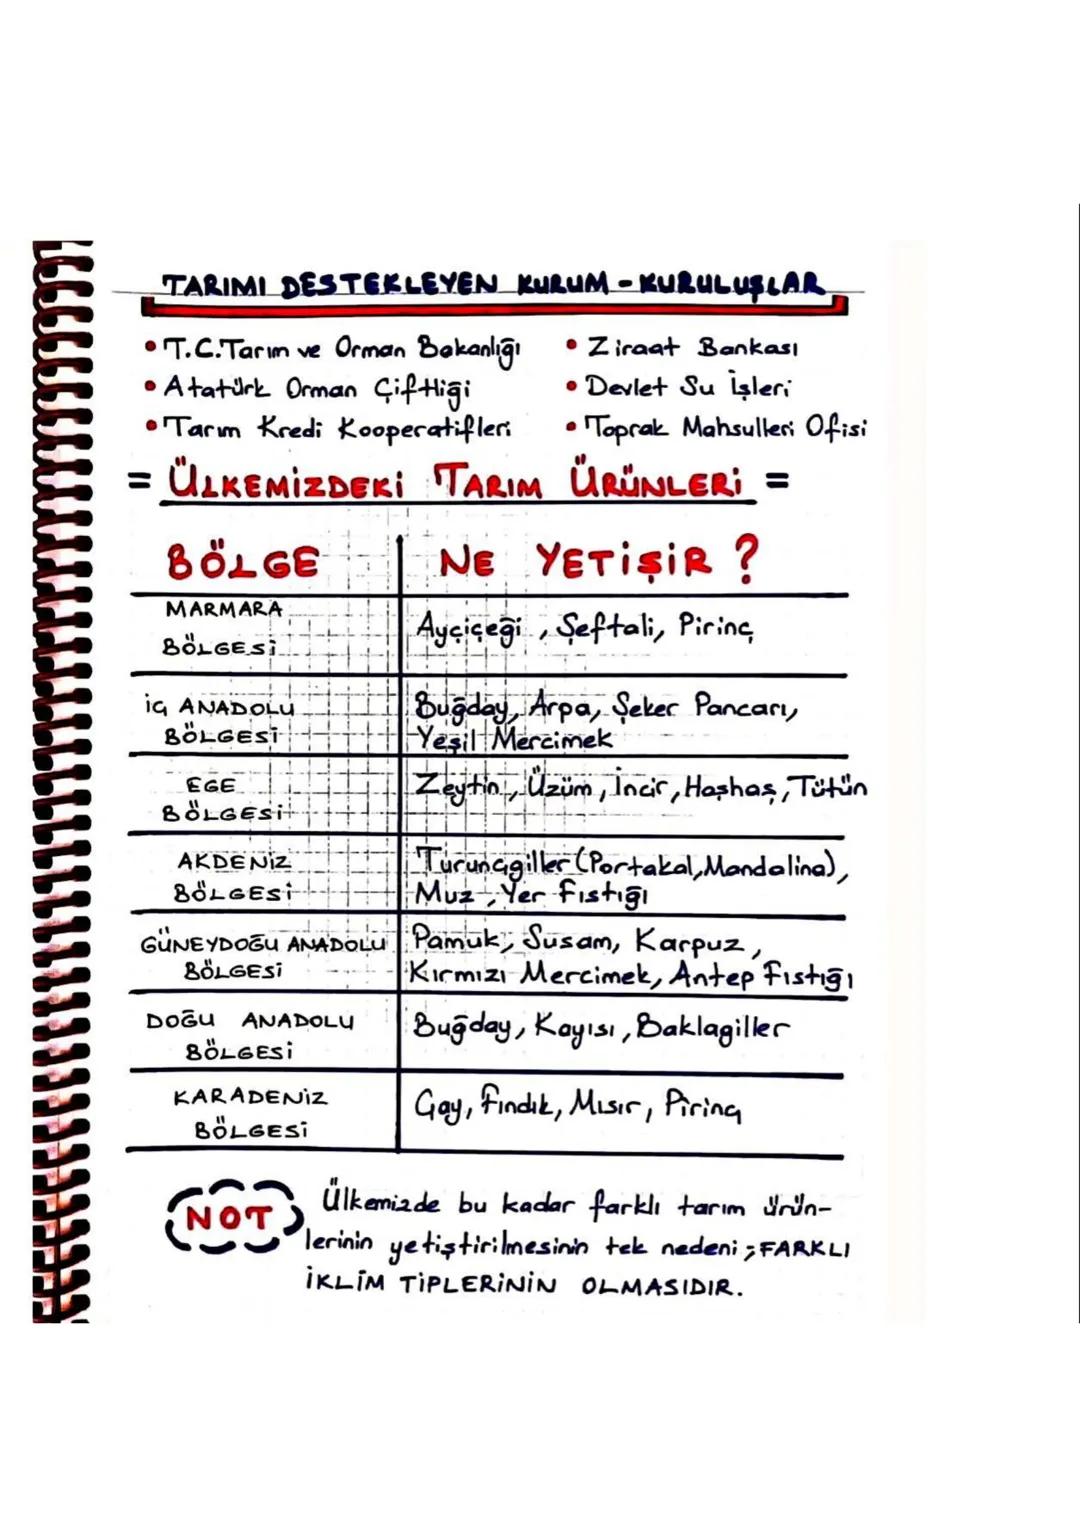 TARIMI DESTEKLEYEN KURUM-KURULUŞLAR
• T.C.Tarım ve Orman Bakanlığı
• Atatürk Orman Çiftliği
• Tarım Kredi Kooperatifleri
• Ziraat Bankası
• Devlet Su İşleri
• Toprak Mahsulleri Ofisi
= ÜLKEMİZDEKİ TARIM ÜRÜNLERİ =
BÖLGE
NE YETİŞİR ?
MARMARA
BÖLGESİ
Ayçiçeği, Şeftali, Pirinç
İÇ ANADOLU
BÖLGESİ
Buğday, Arpa, Şeker Pancarı,
Yeşil Mercimek
EGE
BÖLGESİ
Zeytin, Üzüm, İncir, Haşhaş, Tütün
AKDENİZ
BÖLGESİ
Turunçgiller (Portakal, Mandalina),
Muz, Yer Fıstığı
GÜNEYDOĞU ANADOLU
BÖLGESİ
Pamuk, Susam, Karpuz,
Kırmızı Mercimek, Antep Fıstığı
DOĞU ANADOLU
BÖLGESİ
Buğday, Kayısı, Baklagiller
KARADENİZ
BÖLGESİ
Çay, Fındık, Mısır, Pirinç
NOT
Ülkemizde bu kadar farklı tarım ürün-
lerinin yetiştirilmesinin tek nedeni; FARKLI
İKLİM TİPLERİNİN OLMASIDIR.